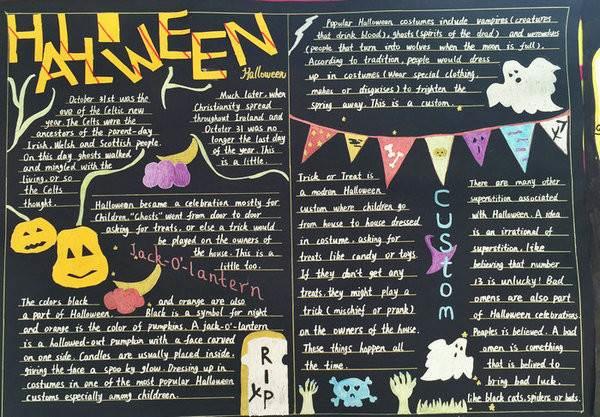 HALLOWEEN
Halloween
October 31st was the
eve of the Celtic new
year. The Celts were the
ancestors of the parent-day
Irish, Welsh and Scottish people.
On this day ghosts walked
and mingled with the
living, or so
the Celts
thought.
Much later, when
Christianity spread
throughout Ireland and
October 31 was no
longer the last day
of the year. This
is a little.
Halloween became a celebration mostly for
Children. "Ghosts" went from door to door
asking for treats, or else a trick would
be played on the owners of
the house. This is a
little too.
Jack-o'-lantern
The colors black and orange are also
a part of Halloween. Black is a symbol for night
and orange is the color of pumpkins. A jack-o'-lantern
is a hallowed-out pumpkin with a face carved
on one side. Candles are usually placed inside,
giving the face a spoo ky glow. Dressing up in
costumes in one of the most popular Halloween
customs especially among childreen.
RIP
Popular Halloween costumes include vampires (creatures
that drink blood), ghosts (spirits of the dead) and werewolves
(people that turn into wolves when the moon is full).
According to tradition, people would dress
up in costumes (wear special clothing,
makes or disguises) to frighten the
spring away. This is a custom.
Trick or Treat is
a modran Halloween
custom where children go
from house to house dressed
in costume, asking for
treats like candy or toys.
If they don't get any
treats, they might play a
trick (mischief or prank)
on the owners of the house.
These things happen all
the time.
Custom
There are many other
superstition associated
with Halloween. A idea
is an irrational of
superstition, like
believing that number
13 is unlucky! Bad
omens are also part
of Halloween celebrations.
Peoples is believed. A bad
omen is something
that is belived to
bring bad luck,
like black cats, spiders or bats.